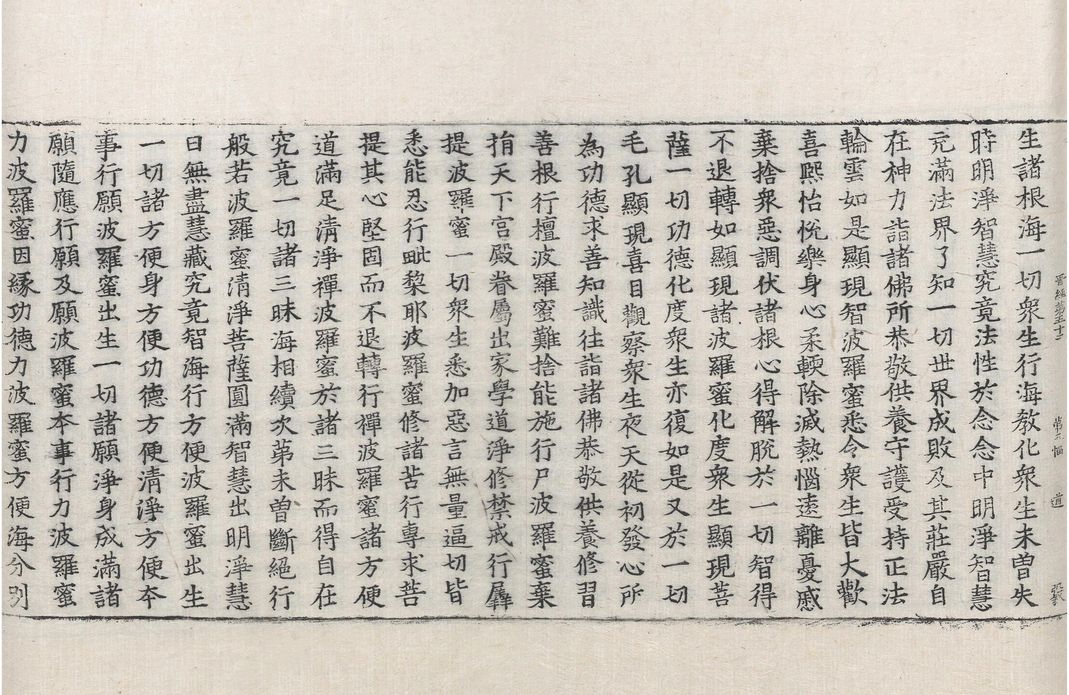 道
生諸根海一切衆生行海教化衆生未曽失
時明淨智慧究竟法性於念念中明淨智慧
充滿法界了知一切世界成敗及其莊嚴自
在神力詣諸佛所恭敬供養守護受持正法
輪雲如是顯現智波羅蜜悉令衆生皆大歡
喜熈怡悅樂身心柔輭除滅熱惱遠離憂慼
棄捨衆惡調伏諸根心得解脫於一切智得
不退轉如顯現諸波羅蜜化度衆生顯現菩
薩一切功德化度衆生亦復如是又於一切
毛孔顯現喜目觀察衆生夜天從初發心所
為功德求善知識往詣諸佛恭敬供養修習
善根行檀波羅蜜難捨能施行尸波羅蜜棄
捐天下宫殿眷屬出家學道淨修禁戒行羼
提波羅蜜一切衆生悉加惡言無量逼切皆
悉能忍行毗黎耶波羅蜜修諸苦行專求菩
提其心堅固而不退轉行禪波羅蜜諸方便
道滿足清淨禪波羅蜜於諸三昧而得自在
究竟一切諸三昧海相續次苐未曽斷絕行
般若波羅蜜清淨菩薩圓滿智慧出明淨慧
日無盡慧藏究竟智海行方便波羅蜜出生
一切諸方便身方便功德方便清淨方便夲
事行願波羅蜜出生一切諸願淨身成滿諸
願隨應行願及願波羅蜜夲事行力波羅蜜
力波羅蜜因緣功德力波羅蜜方便海分別